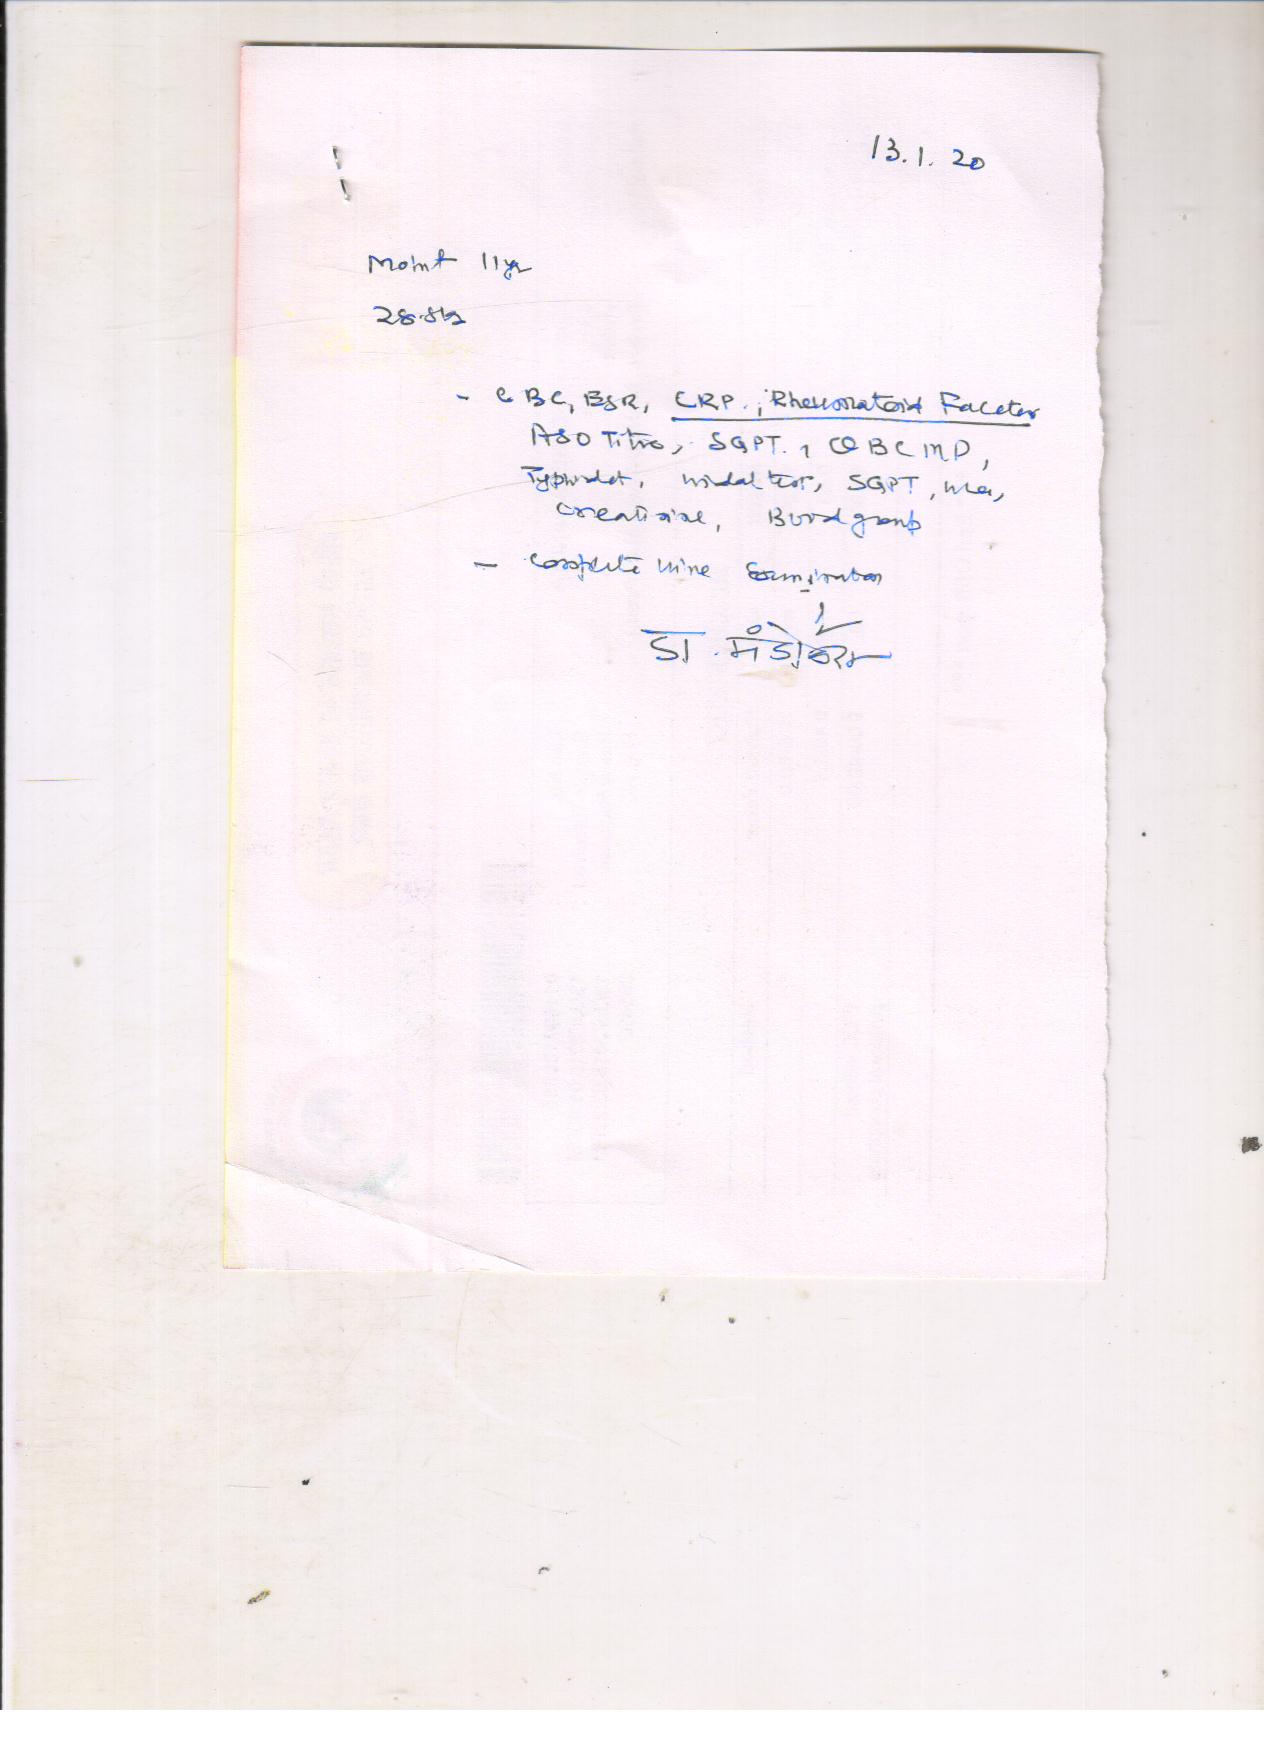 13.1.20
Mohit 11yr
- CBC, ESR, CRP, Rheumatoid Faceter
ASO Titre, SGPT, QBC MP,
Typhidot, widal test, SGPT, urea,
creatinine, Blood group
- complete urine Examination
डा.